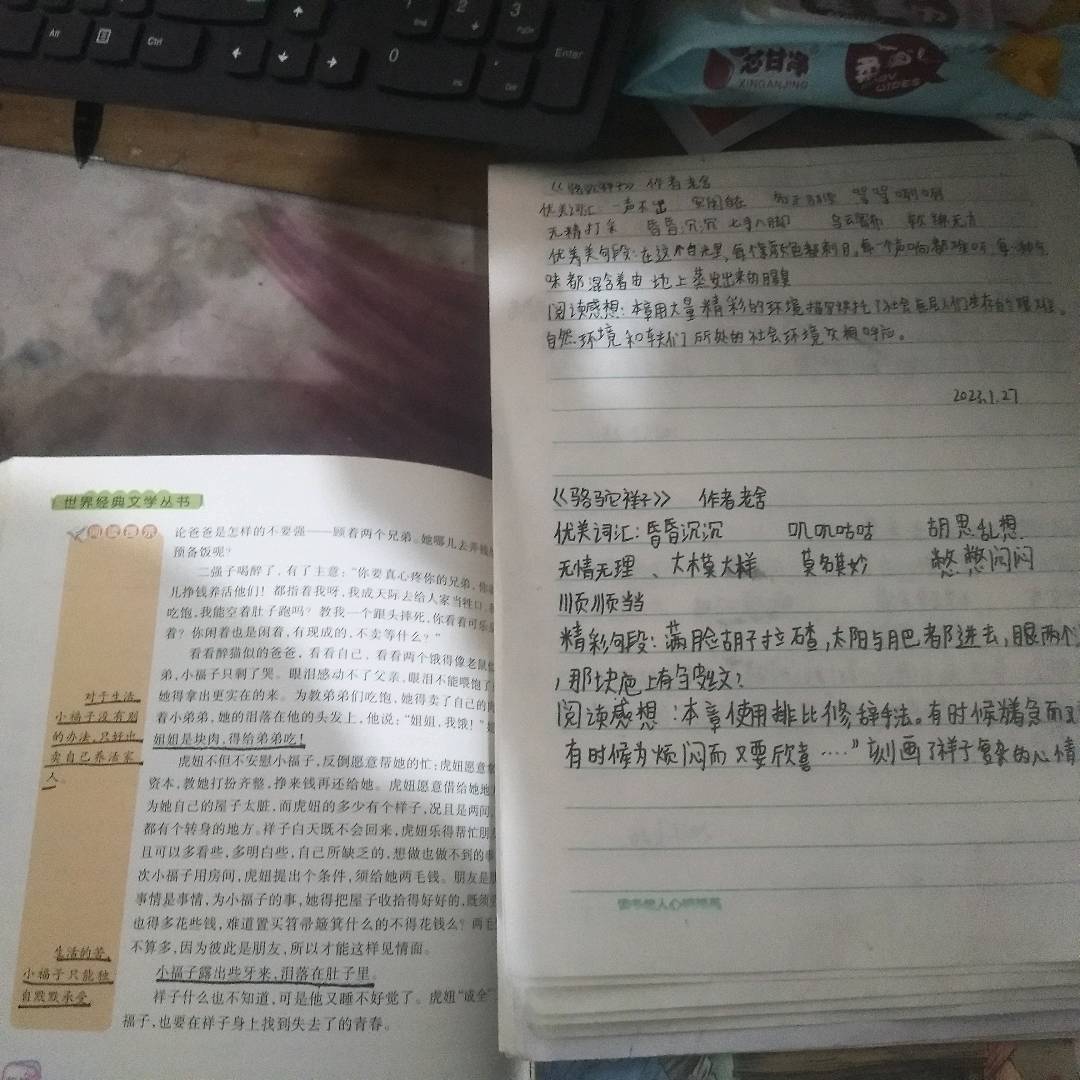 Alt
Ctrl
2
3
0
Enter
芯甘净
XINGANJING
世界经典文学丛书
阅读提示
论爸爸是怎样的不要强——顾着两个兄弟。她哪儿去弄钱
预备饭呢?
二强子喝醉了,有了主意:“你要真心疼你的兄弟,你
儿挣钱养活他们!都指着我呀,我成天际去给人家当牲口,
吃饱,我能空着肚子跑吗?教我一个跟头摔死,你看着可乐
着?你闲着也是闲着,有现成的,不卖等什么?”
看看醉猫似的爸爸,看看自己,看看两个饿得像老鼠
弟,小福子只剩了哭。眼泪感动不了父亲,眼泪不能喂饱了
她得拿出更实在的来。为教弟弟们吃饱,她得卖了自己的
着小弟弟,她的泪落在他的头发上,他说:“姐姐,我饿!”
姐姐是块肉,得给弟弟吃!
虎妞不但不安慰小福子,反倒愿意帮她的忙:虎妞愿意
资本,教她打扮齐整,挣来钱再还给她。虎妞愿意借给她地
为她自己的屋子太脏,而虎妞的多少有个样子,况且是两间,
都有个转身的地方。祥子白天既不会回来,虎妞乐得帮忙朋
且可以多看些,多明白些,自己所缺乏的,想做也做不到的
次小福子用房间,虎妞提出个条件,须给她两毛钱。朋友是
事情是事情,为小福子的事,她得把屋子收拾得好好的,既须
也得多花些钱,难道置买笤帚簸箕什么的不得花钱么?两毛
不算多,因为彼此是朋友,所以才能这样见情面。
小福子露出些牙来,泪落在肚子里。
祥子什么也不知道,可是他又睡不好觉了。虎妞“成全”
福子,也要在祥子身上找到失去了的青春。
对于生活,
小福子没有别
的办法,只好出
卖自己养活家
人。
生活的苦,
小福子只能独
自默默承受。
《骆驼祥子》 作者老舍
优美词汇:一声不出
无精打采 昏昏沉沉 七手八脚 乌云密布 软绵无力
优秀美句段:在这个白光里,每个颜色都刺目,每一个声响都难听,每一种气
味都混含着由地上蒸发出来的腥臭
阅读感想:本章用大量精彩的环境描写烘托了社会底层人们生存的艰难。
自然环境和车夫们所处的社会环境互相呼应。
2023.1.27
《骆驼祥子》 作者老舍
优美词汇:昏昏沉沉 叽叽咕咕 胡思乱想
无情无理、大模大样 莫名其妙 憋憋闷闷
顺顺当当
精彩句段:满脸胡子拉碴,太阳与腮都陷进去,眼两个
,那块疤上有多皱纹?
阅读感想:本章使用排比修辞手法。有时候为着急而又
有时候为烦闷而又要欣喜……”刻画了祥子复杂的心情